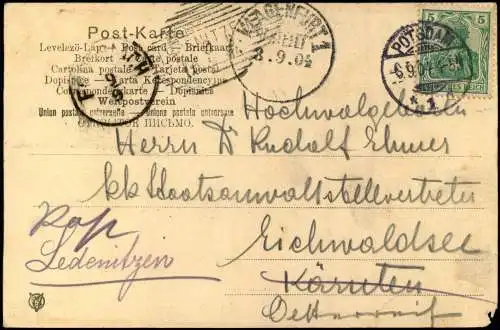 Post-Karte
Levelező-Lap Post card Briefkaart
Brefkort Carte postale
Cartolina postale Tarjeta postal
Dopisnice Karta Korespondencyjna
Correspondenzkarte Dopisnica
Weltpostverein
Union postale universelle Unione postale universale
ОТКРЫТОЕ ПИСЬМО.
KLAGENFURT 1
8.9.04
POTSDAM
6.9.04
*1
5 5
T
Hochwolgeboren
Herrn Dr Rudolf Ebner
kk Staatsanwaltstellvertreter
Eichwaldsee
Kärnten
Oesterreich
Rap
Ledenitzen